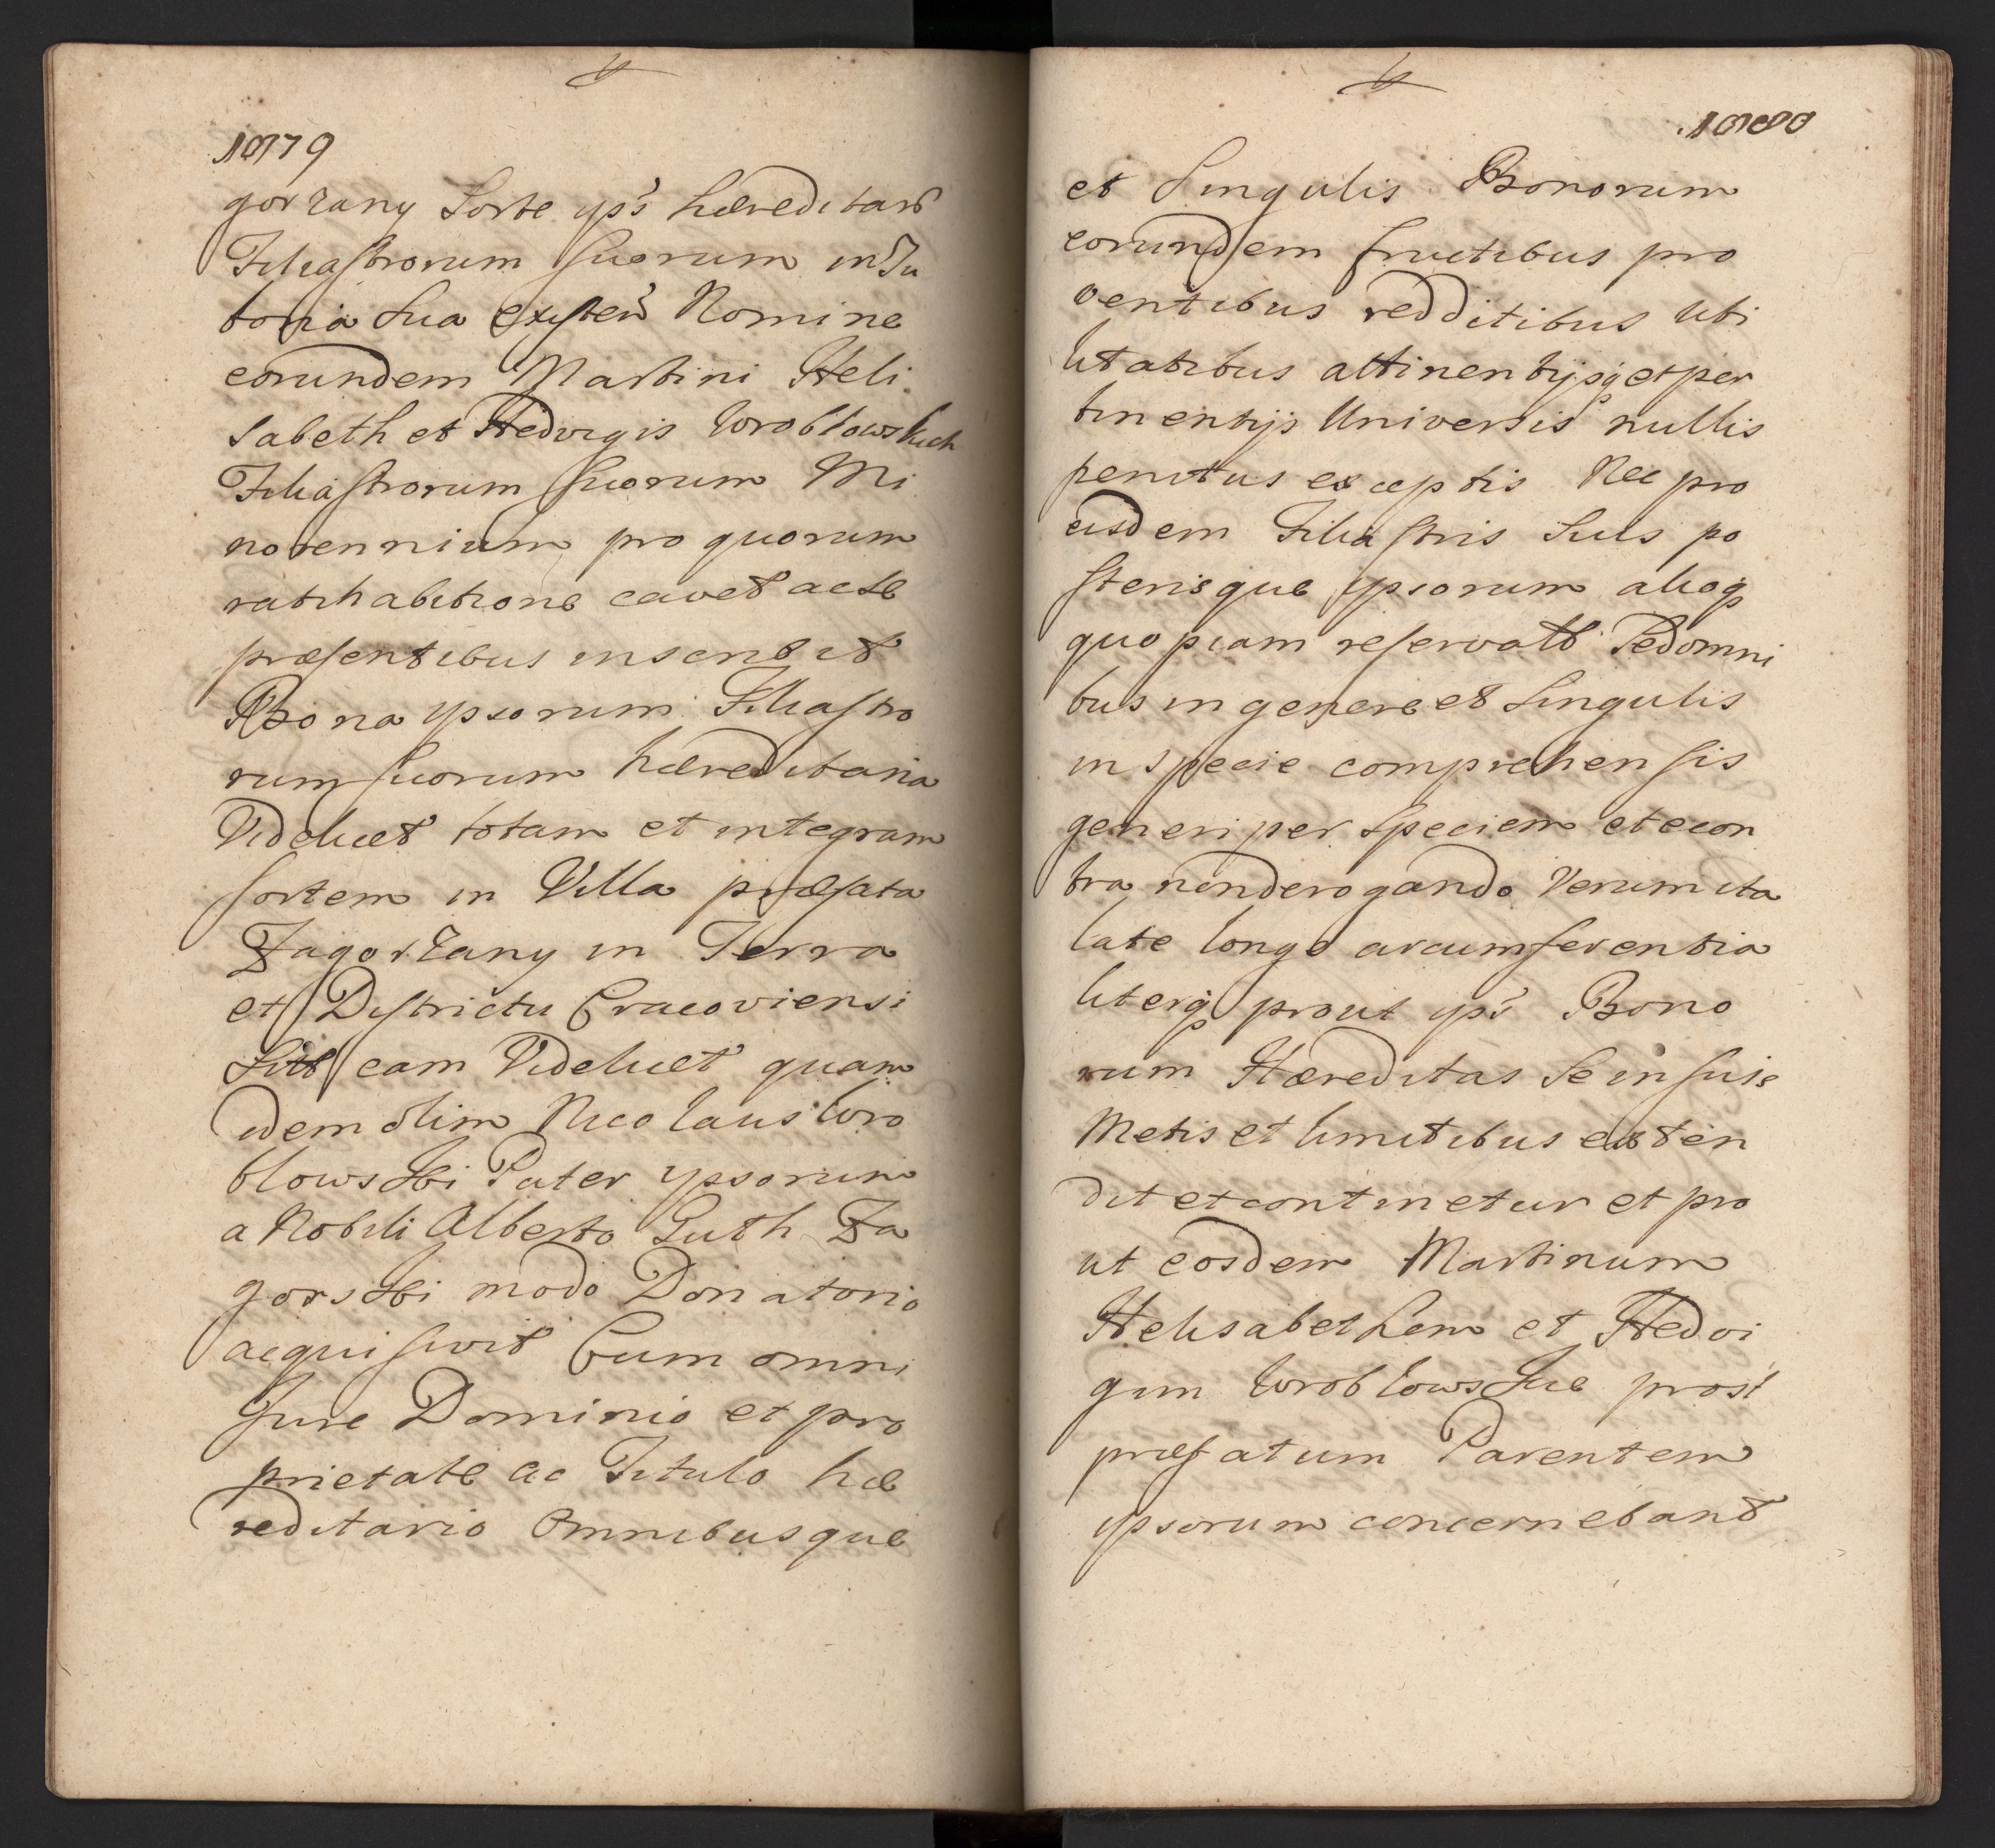 1079
gorzany Sorte yps hæreditari
Filiastrorum Suorum in Tu
toria Sua existen Nomine
eorundem Martini Heli
sabeth et Hedvigis Wroblowskich
Filiastrorum Suorum Mi
norennium pro quorum
ratihabitione cavet acte
præsentibus inscribit
Bona ypsorum Filiastro
rum suorum hæreditaria
Videlicet totam et integram
sortem in Villa præfata
Zagorzany in Terra
et Districtu Cracoviensi
Sitt eam Videlicet quam
idem olim Nicolaus Wro
blowski Pater ypsorum
a Nobili Alberto Guth Za
gorski modo Donatorio
acquisivit Cum omni
Jure Dominio et pro
prietate ac Titulo hæ
reditario Omnibusque
1080
et Singulis Bonorum
eorundem fructibus pro
ventibus redditibus Uti
litatibus attinentijsq et per
tinentijs Universis nullis
penitus exceptis Nec pro
eisdem Filiastris Suis po
sterisque ypsorum alioq
quopiam reservatt Sed omni
bus in genere et Singulis
in specie comprehensis
generi per Speciem et econ
tra non derogando Verum ita
late longe circumferentia
literq prout yps Bono
rum Hæreditas Se in suis
Metis et limitibus exten
dit et continetur et pro
ut eosdem Martinum
Helisabethem et Hedvi
gim Wroblowskie post
præfatum Parentem
ypsorum concernebant